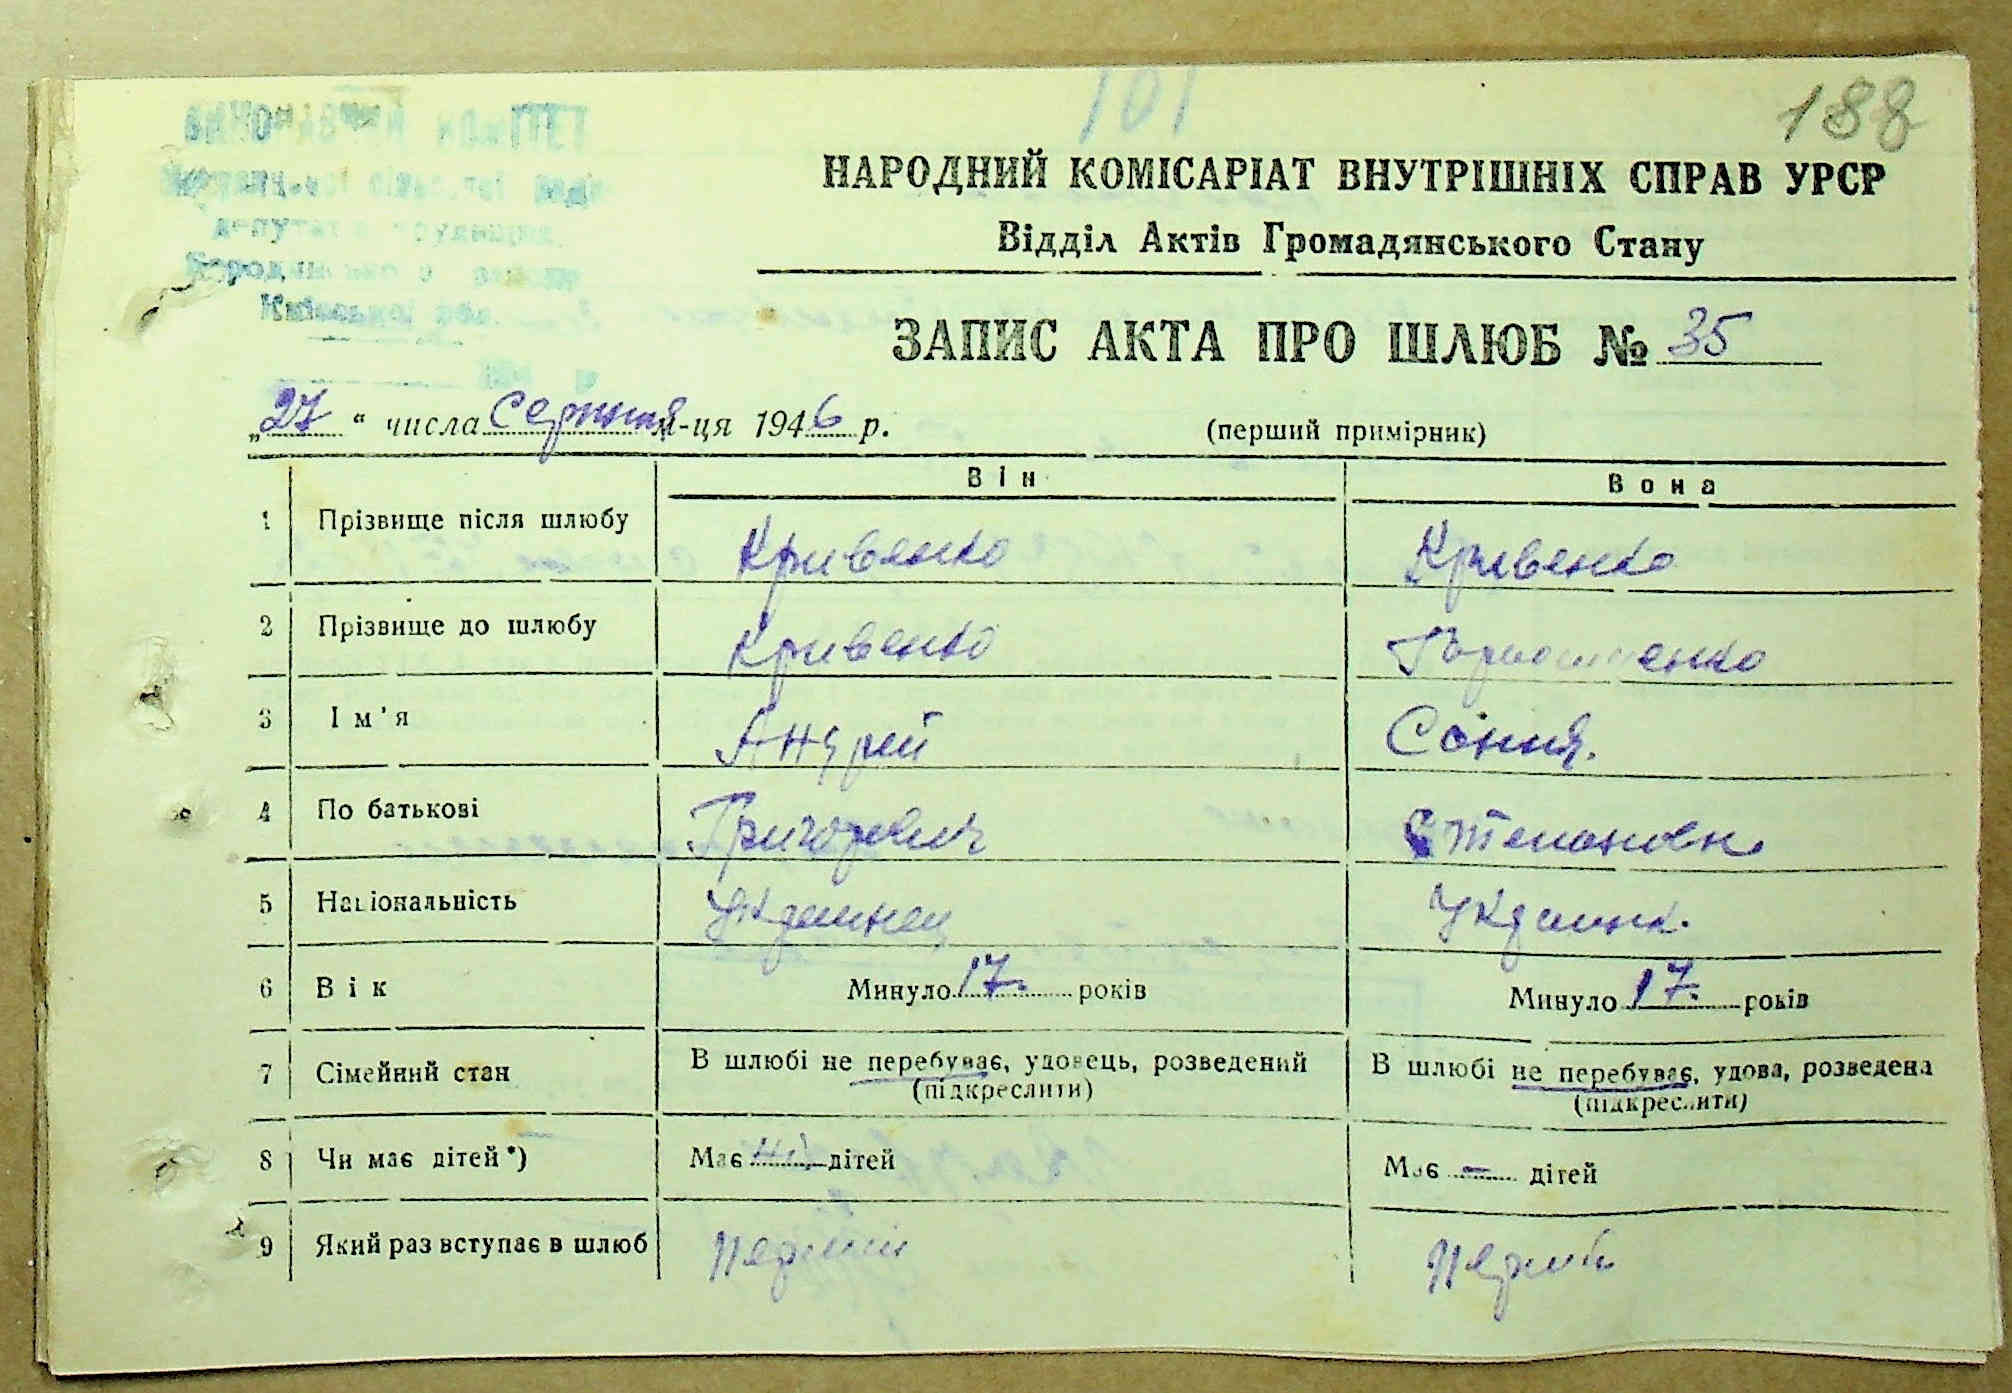 101
188
НАРОДНИЙ КОМІСАРІАТ ВНУТРІШНІХ СПРАВ УРСР
Відділ Актів Громадянського Стану
депутатів трудящих
Київської обл.
ЗАПИС АКТА ПРО ШЛЮБ № 35
„27“ числа Серпня м-ця 1946 р. (перший примірник)
Він Вона
1 Прізвище після шлюбу Кривенко Кривенко
2 Прізвище до шлюбу Кривенко
3 Ім'я Андрей Сонія.
4 По батькові Григоревич Степановн
5 Національність Украинец Украинк.
6 Вік Минуло 17. років Минуло 17. років
7 Сімейний стан В шлюбі не перебуває, удовець, розведений (підкреслити) В шлюбі не перебуває, удова, розведена (підкреслити)
8 Чи має дітей*) Має ні дітей Має – дітей
9 Який раз вступає в шлюб Перший Перший